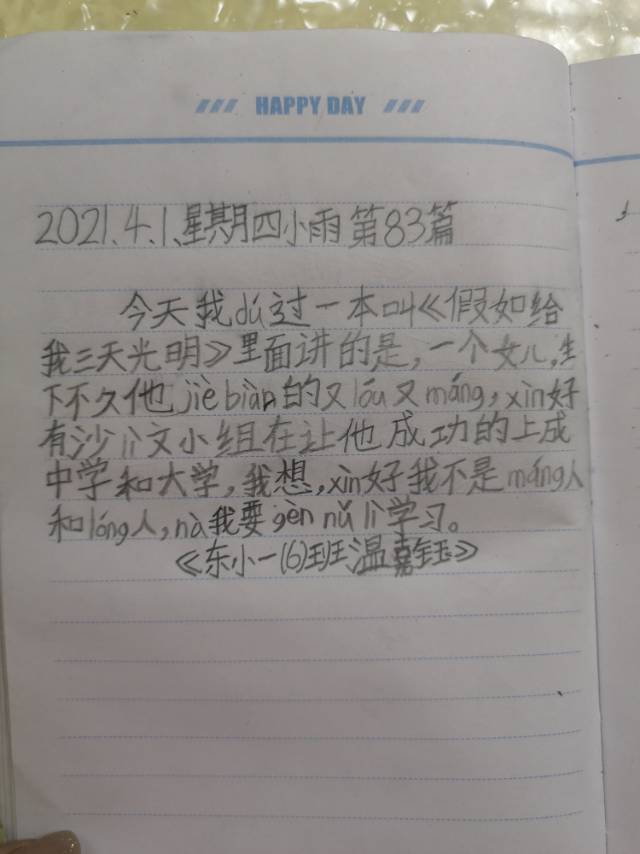 HAPPY DAY
2021.4.1、星期四小雨第83篇
今天我dú过一本叫《假如给
我三天光明》里面讲的是,一个女儿,生
下不久他jiè biàn的又lóu又máng,xìn好
有沙lì文小组在让他成功的上成
中学和大学,我想,xìn好我不是máng人
和lóng人,nà我要gèn nǔ lì学习。
《东小一(6)班温嘉钰》